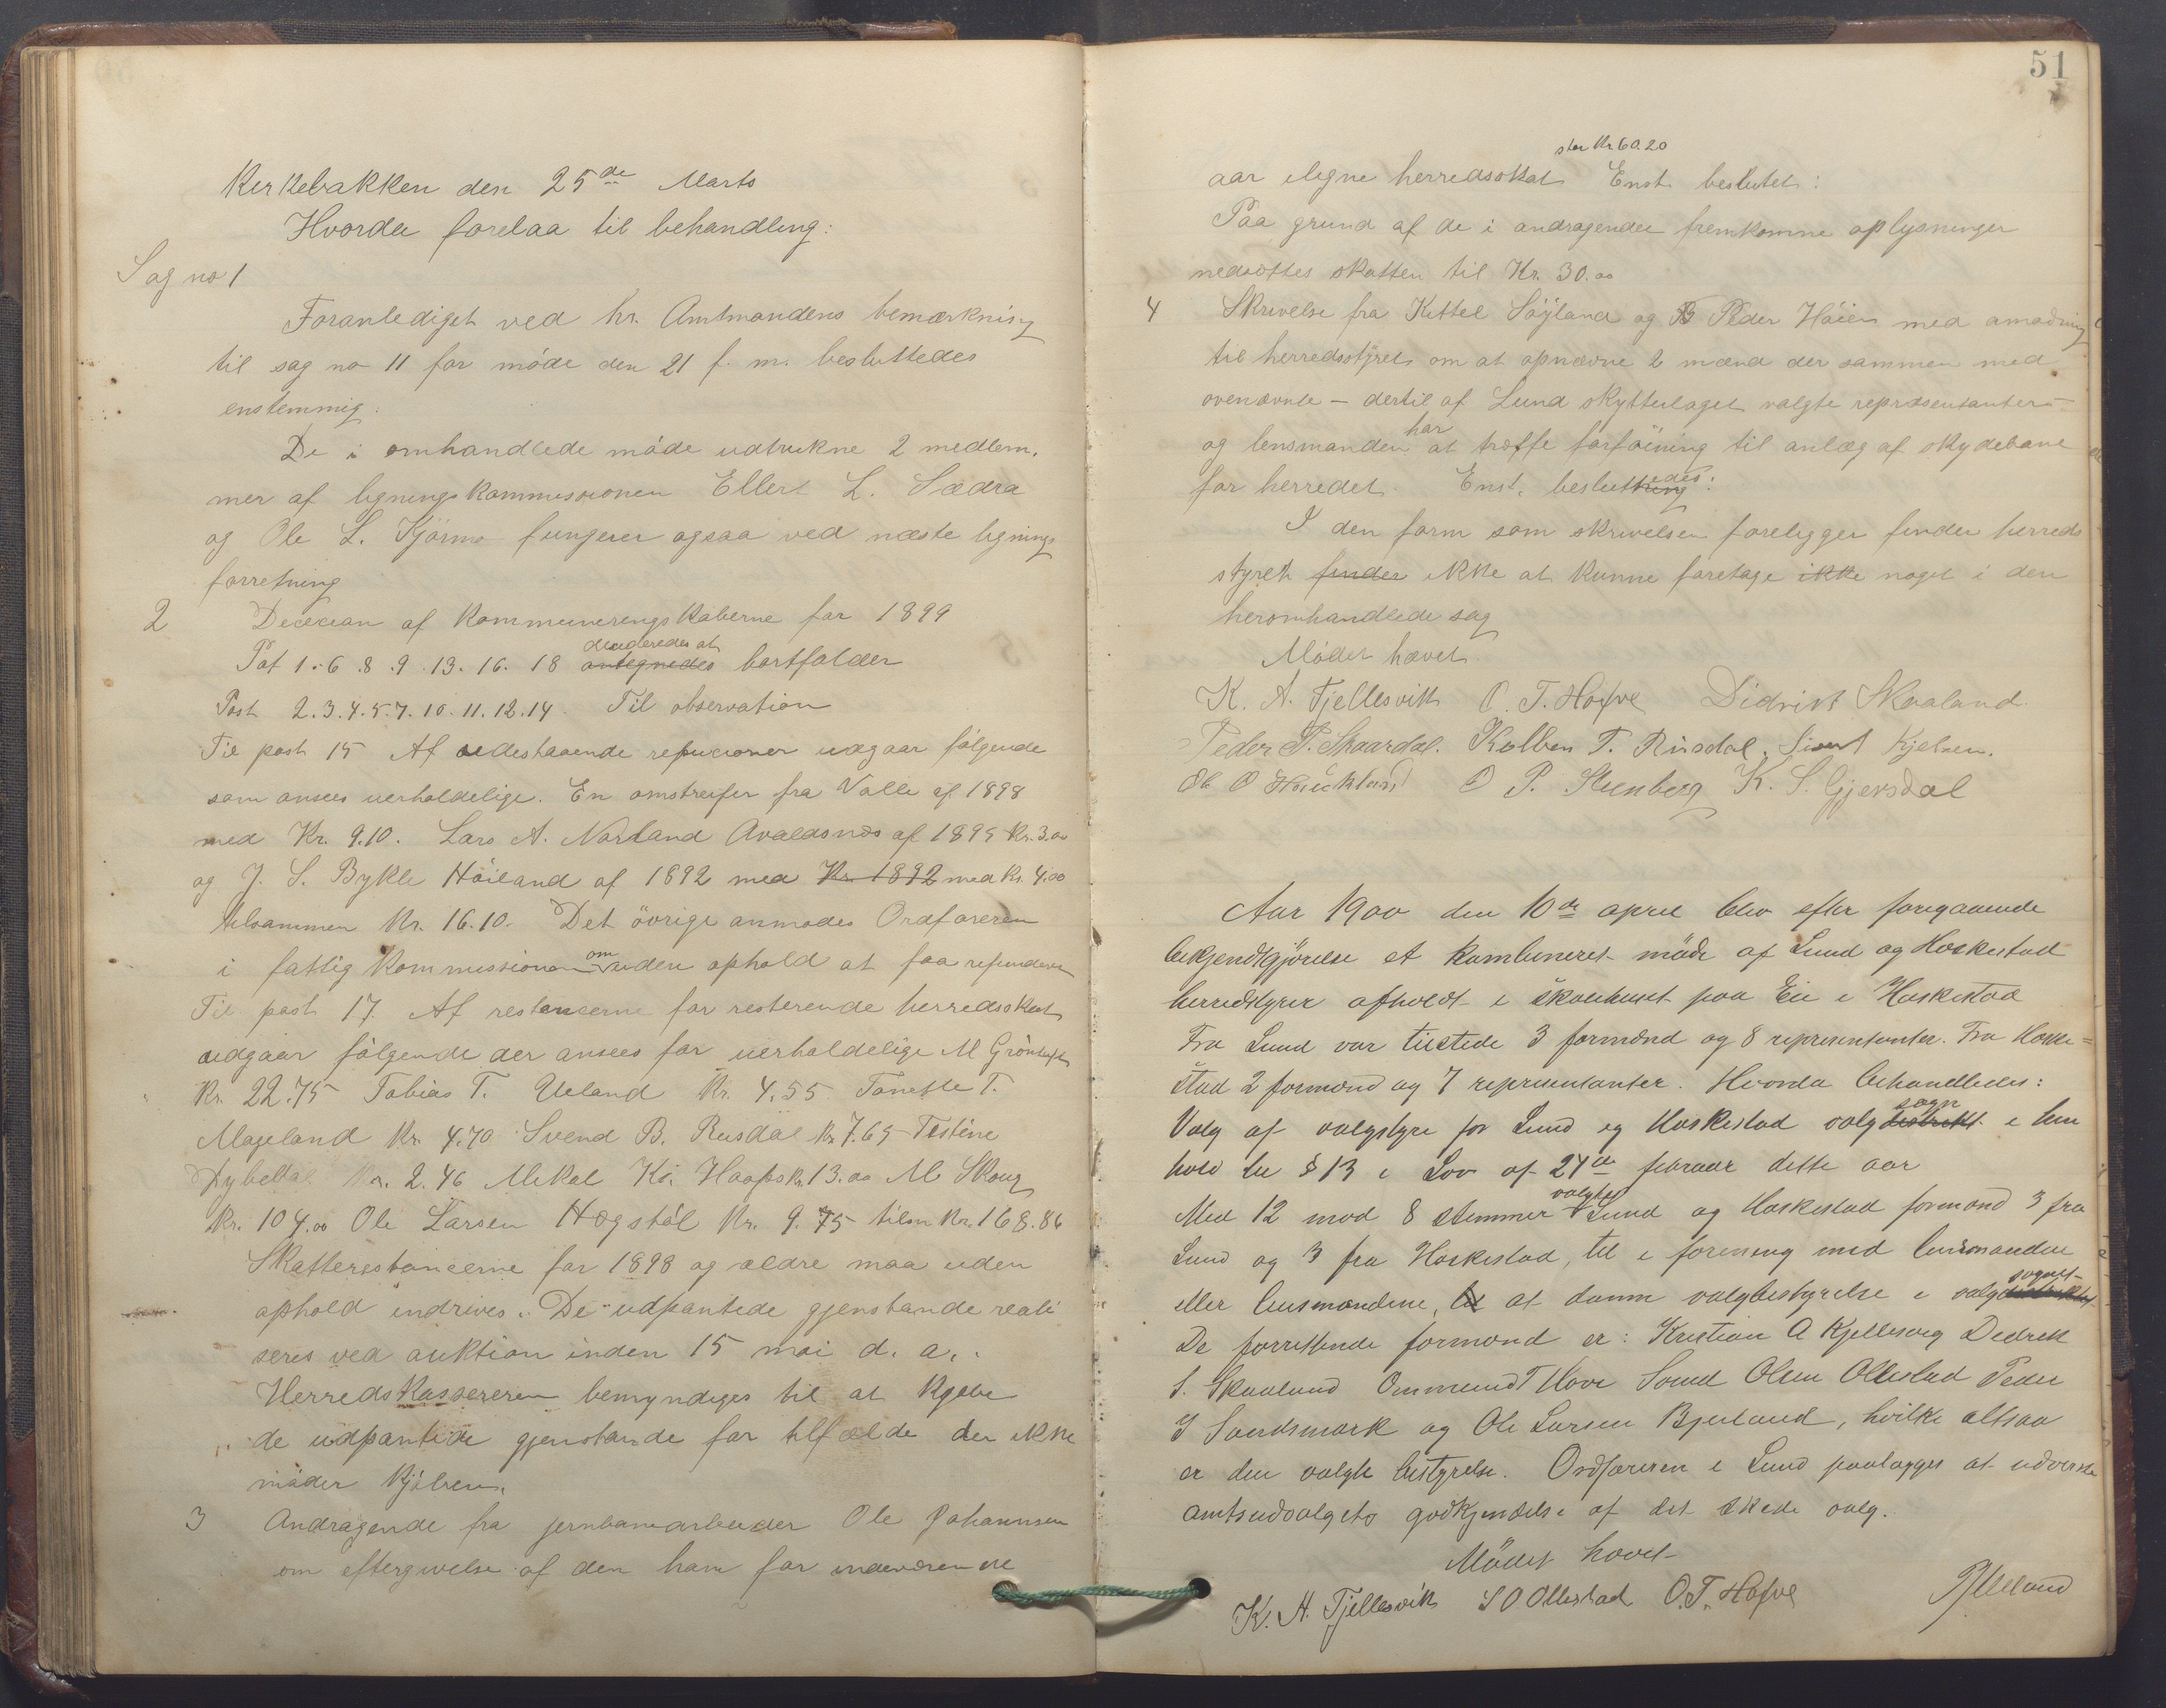 Kirkebakken den 25de Marts
Hvorda forelaa til behandling:
Sag no 1
Foranlediget ved hr. Amtmandens bemærkning
til sag no 11 for möde den 21 f. m. besluttedes
enstemmig:
De i omhandlede möde udtrukne 2 medlem,
mer af ligningskommissionen Ellert L. Sædra
og Ole L. Kjörmo fungerer ogsaa ved næste lignings
forretning
2 Decision af Kommuneregnskaberne for 1899
Post 1.-6.8.9.13.16.18 antegnedes decideredes at bortfalder
Post 2.3.4.5.7.10.11.12.14. Til observation
Til post 15 Af udestaaende refusioner udgaar fölgende
som ansees uerholdelige. En omstreifer fra Valle af 1898
med Kr. 9.10. Lars A. Norland Avaldsnæs af 1895 Kr. 3.00
og J. S. Bykle Höiland af 1892 med Kr. 1892 med Kr. 4.00
tilsammen Kr. 16.10. Det övrige anmodes Ordföreren
i fattigkommissionen om uden ophold at faa refunderet
Til post 17. Af restancerne for resterende herredsskat
udgaar fölgende der ansees for uerholdelige M Gröntoft
Kr. 22.75 Tobias T. Ueland Kr. 4.55 Tonette T.
Mageland Kr. 4.70 Svend B. Rusdal Kr 7.65 Tistine
Dybedal Kr. 2.46 Mikal Kr. Haaps Kr. 13.00 M Skoug
Kr. 104.00 Ole Larsen Hogstöl Kr. 9.75 tilsm Kr. 168.86
Skatterestancerne for 1898 og ældre maa uden
ophold indrives. De udpantede gjenstande reali
seres ved auktion inden 15 mai d. a.
Herredskassereren bemyndiges til at kjöbe
de udpantede gjenstande for tilfælde der ikke
möder kjöbere.
3 Andragende fra jernbanearbeider Ole Johannsen
om eftergivelse af den ham for indeværende
51
aar ilegne herredsskat stor Kr. 60.20 Enst. beslutet:
Paa grund af de i andragendet fremkomne oplysninger
nedsættes skatten til Kr. 30.00
4 Skrivelse fra Kittel Söyland og B Peder Höien med anmodning
til herredsstyret om at opnævne 2 mænd der sammen med
ovenævnte – dertil af Lund skytterlaget valgte repræsentanter –
og lensmanden har at træffe forföining til anlæg af skydebane
for herredet. Enst. besluttedes:
I den form som skrivelsen foreligger finder herreds
styret finder ikke at kunne foretage ikke noget i den
heromhandlede sag
Mödet hævet.
K. A. Fjellesvik O. T. Hofve Didrik Skaaland
Peder P. Skaardal. Kolben T. Rusdal. Sivert Kjelsen.
Ole O Haukland O P. Steenberg K. S. Gjersdal
Aar 1900 den 10de april blev efter foregaaende
bekjendtgjörelse et kombineret möde af Lund og Heskestad
herredstyrer afholdt i skolehuset paa Eie i Heskestad
Fra Lund var tilstede 3 formænd og 8 representanter. Fra Heske=
stad 2 formænd og 7 representanter. Hvorda behandledes:
Valg af valgstyre for Lund og Heskestad valgdistrikt sogn i hen
hold til § 13 i Lov af 24de februar dette aar
Med 12 mod 8 stemmer valgtes Lund og Heskestad formænd 3 fra
Lund og 3 fra Heskestad, til i forening med lensmanden
eller lensmændene, til at danne valgbestyrelse i valgdistriktet sognet-
De forrettende formænd er: Kristian A Kjellesvig Dedrek
S. Skaaland Ommund T Hove Svend Olsen Ollestad Peder
J Sandsmark og Ole Larsen Bjerland, hvilke altsaa
er den valgte bestyrelse. Ordföreren i Lund paalægges at udvirke
amtsudvalgets godkjendelse af det skede valg.
Mödet hævet
K. A. Fjellesvik S O Ollestad O. T. Hofve